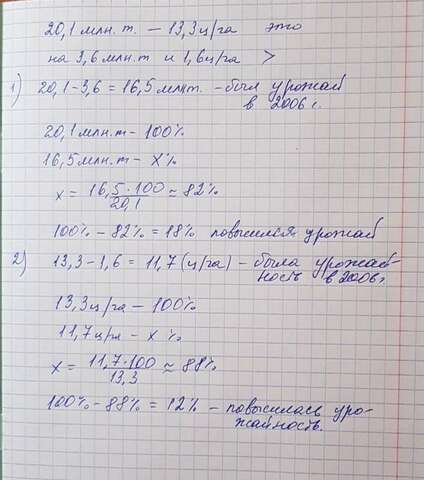 20,1 млн. т. — 13,3 ц/га это
на 3,6 млн. т и 1,6 ц/га >
1) 20,1 - 3,6 = 16,5 млн т. - был урожай
в 2006 г.
20,1 млн. т - 100%
16,5 млн. т - х%
х = 16,5 · 100 / 20,1 ≈ 82%
100% - 82% = 18% повысился урожай
2) 13,3 - 1,6 = 11,7 (ц/га) - была урожай-
ность в 2006 г.
13,3 ц/га — 100%
11,7 ц/га - х %
х = 11,7 · 100 / 13,3 ≈ 88%
100% - 88% = 12% - повысилась уро-
жайность.